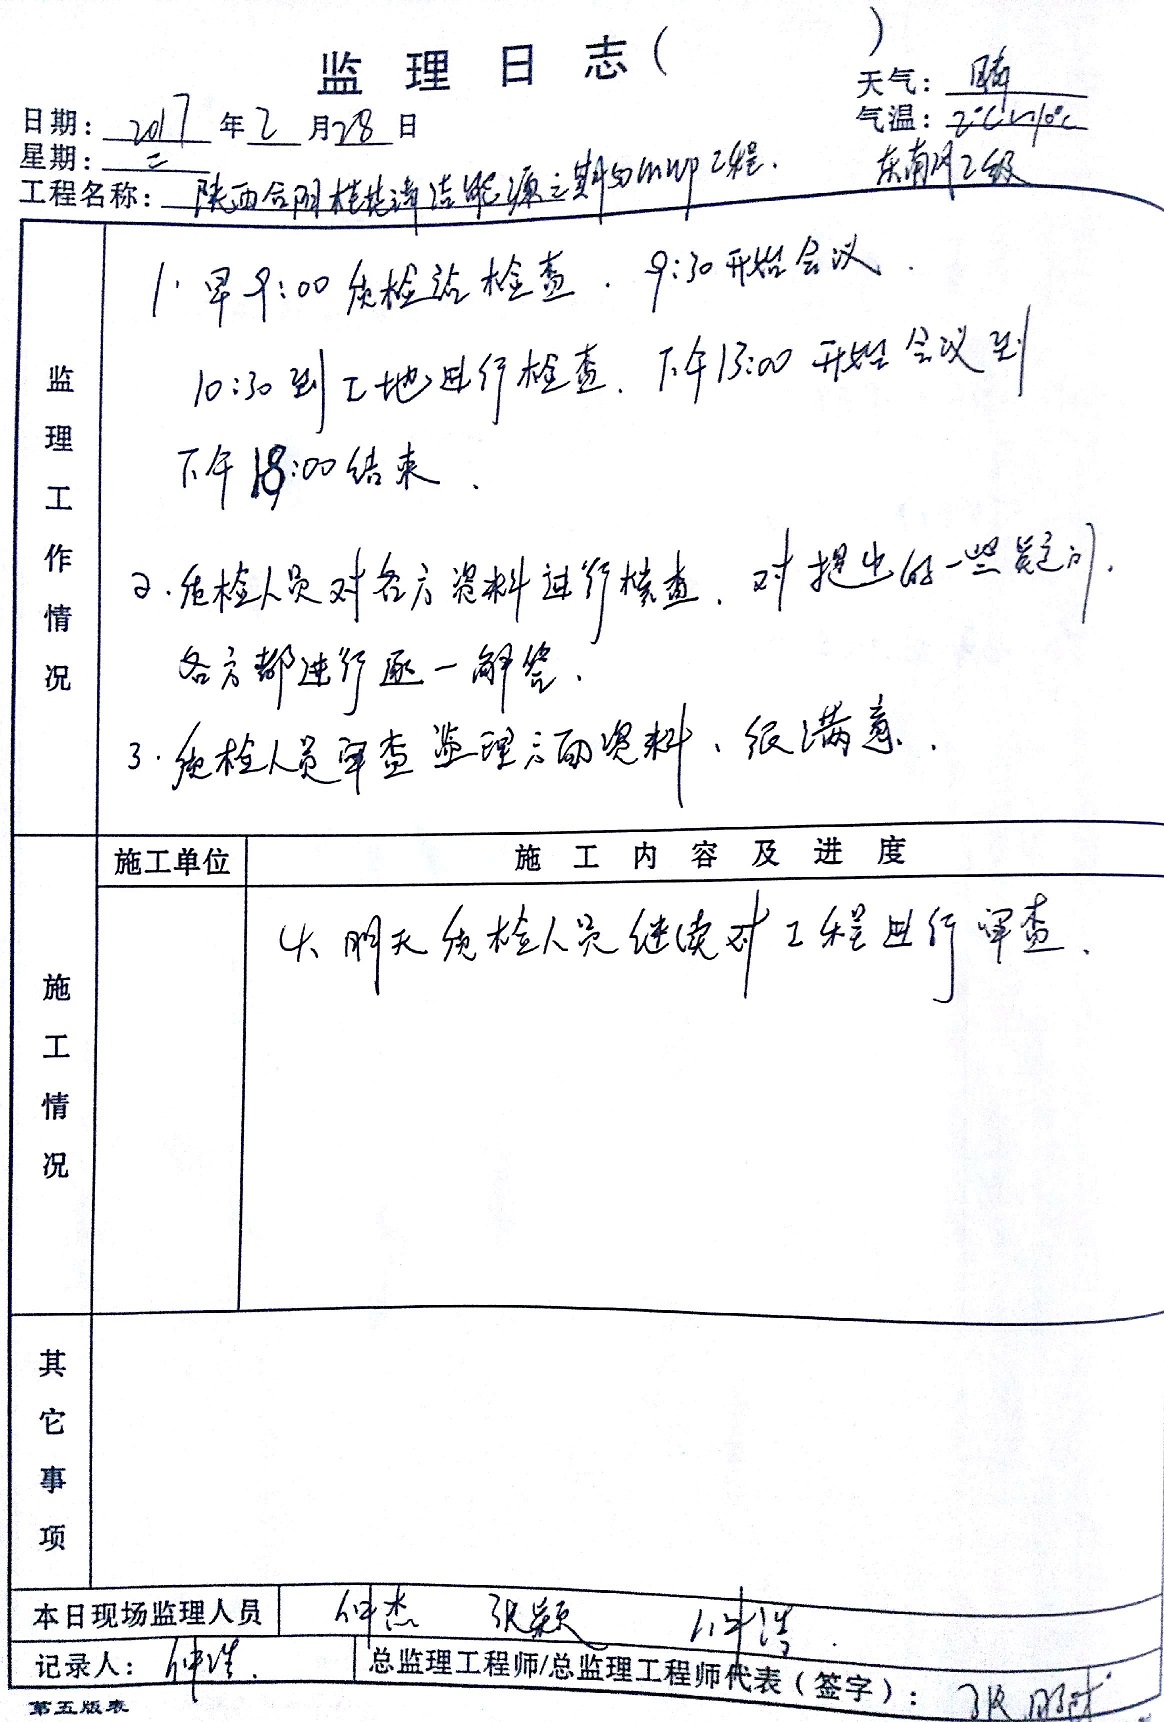 监理日志（ ）
天气：晴
日期：2017年2月28日
气温：2℃~10℃
星期：二
东南风2级
工程名称：陕西合阳 清洁能源二期50MWp工程.
监理工作情况
1. 早9:00质检站检查. 9:30开始会议.
10:30到工地进行检查. 下午15:00开始会议到
下午18:00结束.
2. 质检人员对各方资料进行核查. 对提出的一些疑问.
各方都进行逐一解答.
3. 质检人员审查监理方面资料、很满意.
施工单位 施工内容及进度
施工情况
4、明天质检人员继续对工程进行审查.
其它事项
本日现场监理人员 仲杰 张颖 仲浩.
记录人：仲浩. 总监理工程师/总监理工程师代表（签字）：张
第五版表